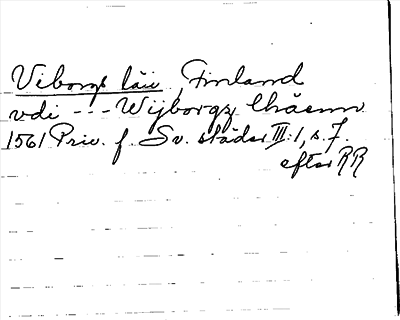 Viborgs län, Finland
vdi --- Wijborgz lhäenn
1561 Priv. f. Sv. städer III:1, s. 7.
efter RR